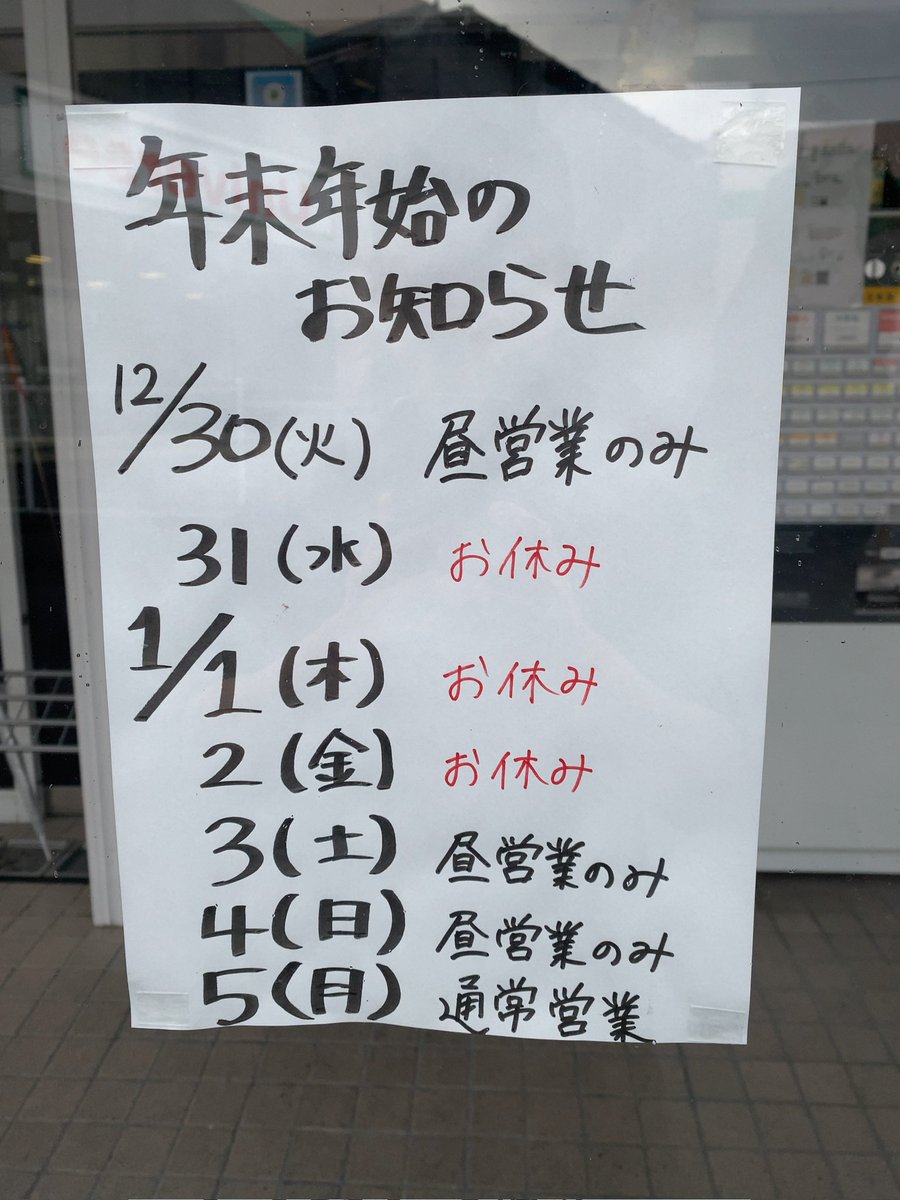 年末年始の
お知らせ
12/30(火) 昼営業のみ
31(水) お休み
1/1(木) お休み
2(金) お休み
3(土) 昼営業のみ
4(日) 昼営業のみ
5(月) 通常営業